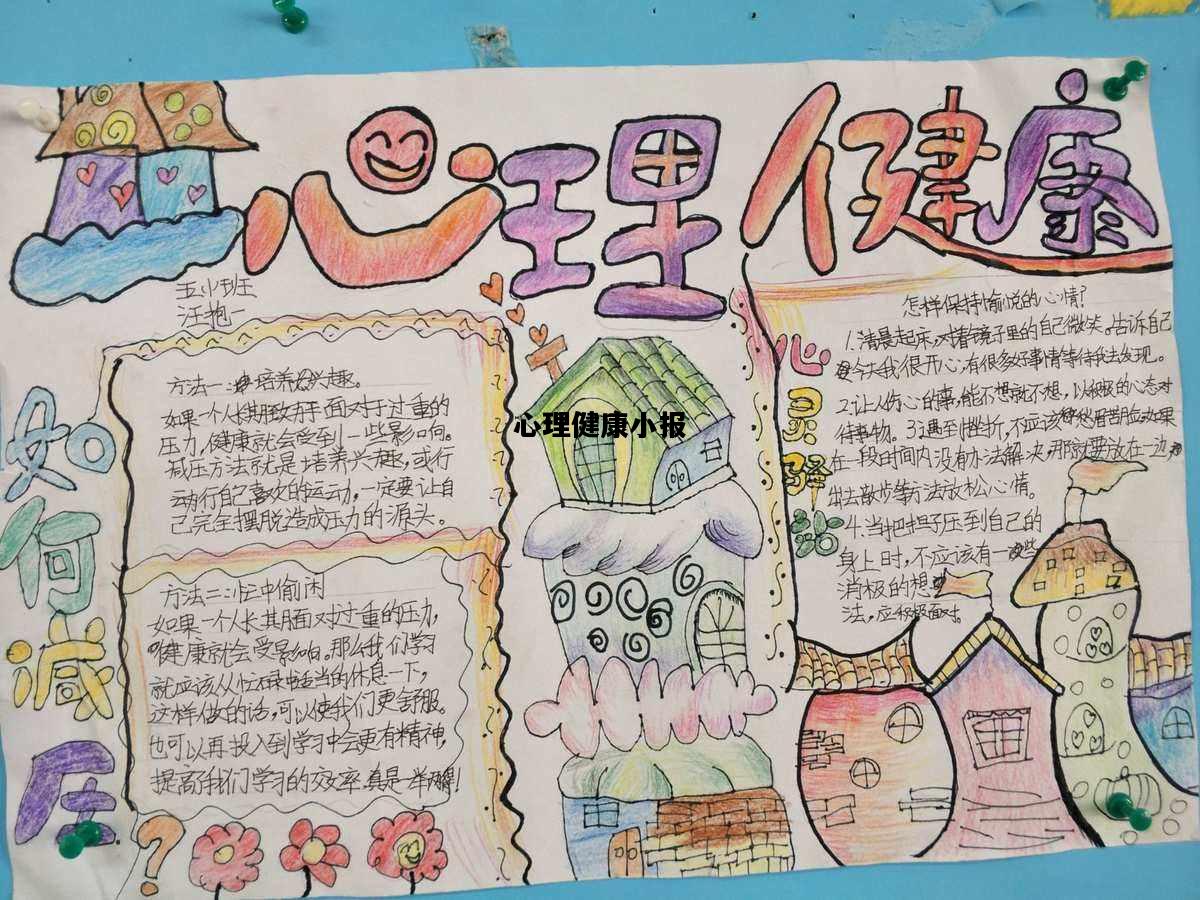 心理健康
五小班
汪抱一
如何减压?
方法一:培养兴趣。
如果一个人长期致力于面对于过重的
压力,健康就会受到一些影响。
减压方法就是培养兴趣,或行
运动行自己喜欢的运动,一定要让自
己完全摆脱造成压力的源头。
方法二:忙中偷闲
如果一个人长期面对过重的压力,
健康就会受影响。那么我们学习
就应该从忙碌中适当的休息一下,
这样做的话,可以使我们更舒服。
也可以再投入到学习中会更有精神,
提高我们学习的效率.真是一举两得!
心理健康小报
心灵驿站
怎样保持愉悦的心情?
1.清晨起床,对着镜子里的自己微笑。告诉自己
今天我很开心,有很多好事情等待我去发现。
2.让人伤心的事,能不想就不想,以积极的心态对
待事物。3.遇到挫折,不应该愁眉苦脸,如果
在一段时间内没有办法解决,那就要放在一边,
出去散步等方法放松心情。
4.当把担子压到自己的
身上时,不应该有一些
消极的想
法,应积极面对。